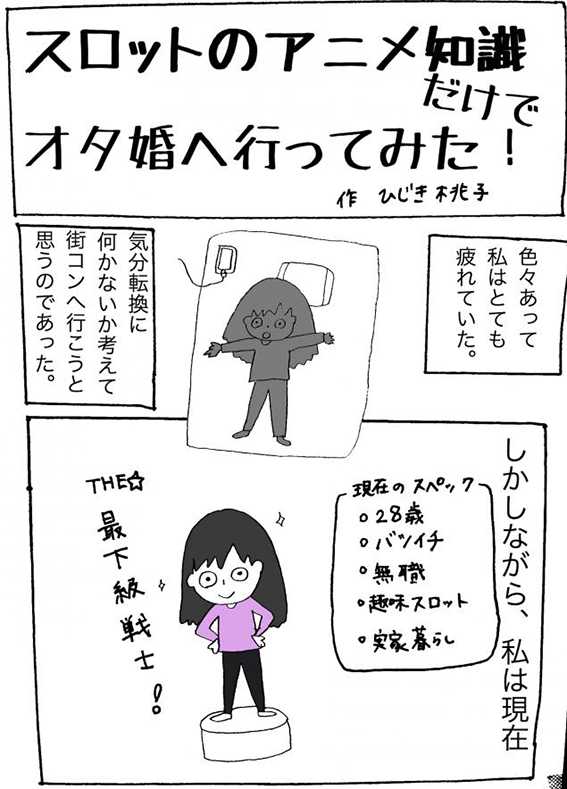 スロットのアニメ知識
だけで
オタ婚へ行ってみた！
作 ひじき桃子
色々あって
私はとても
疲れていた。
気分転換に
何かないか考えて
街コンへ行こうと
思うのであった。
しかしながら、私は現在
現在のスペック
○28歳
○バツイチ
○無職
○趣味スロット
○実家暮らし
THE☆
最下級戦士！